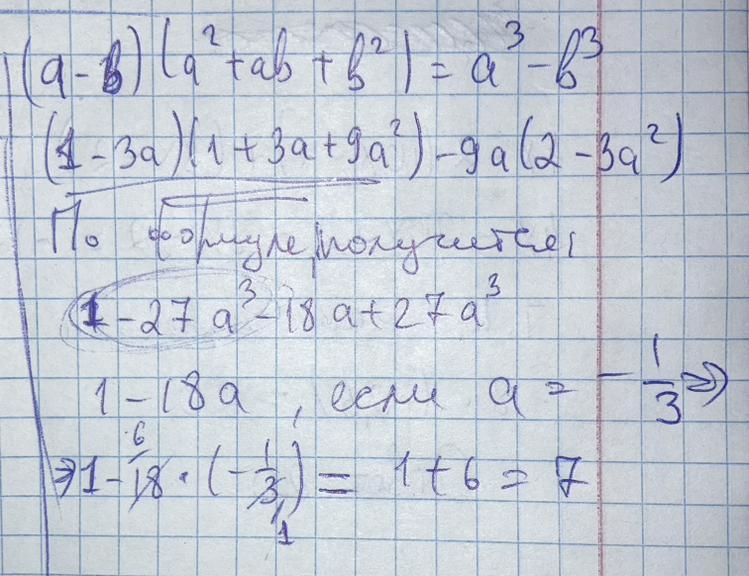 (a - b)(a² + ab + b²) = a³ - b³
(1 - 3a)(1 + 3a + 9a²) - 9a(2 - 3a²)
По формуле, получится:
1 - 27a³ - 18a + 27a³
1 - 18a, если a = - 1/3 ⇒
⇒ 1 - 18 6 · (- 1/3 1) = 1 + 6 = 7